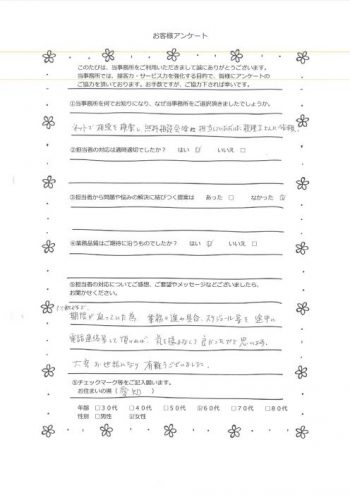 お客様アンケート
このたびは、当事務所をご利用いただきまして誠にありがとうございます。
当事務所では、接客力・サービス力を強化する目的で、皆様にアンケートの
ご協力を頂いております。お手数ですが、ご協力下されば幸いです。
①当事務所を何でお知りになり、なぜ当事務所をご選択頂きましたでしょうか。
ネットで 相続を検索し、無料相談会
②担当者の対応は適時適切でしたか？ はい ☑ いいえ □
③担当者から問題や悩みの解決に結びつく提案は あった □ なかった ☑
④業務品質はご期待に沿うものでしたか？ はい ☑ いいえ □
⑤担当者の対応についてご感想、ご要望やメッセージなどございましたら、
お聞かせください。
期限が迫っていた為 業務の進み具合、スケジュール等を 途中に
電話連絡等して頂ければ、気を揉まなくて 良かったかと思います。
大変お世話になり 有難うございました。
⑥チェックマーク等をご記入願います。
お住まいの県（愛知）
年齢 □３０代 □４０代 □５０代 ☑６０代 □７０代 □８０代
性別 □男性 ☑女性